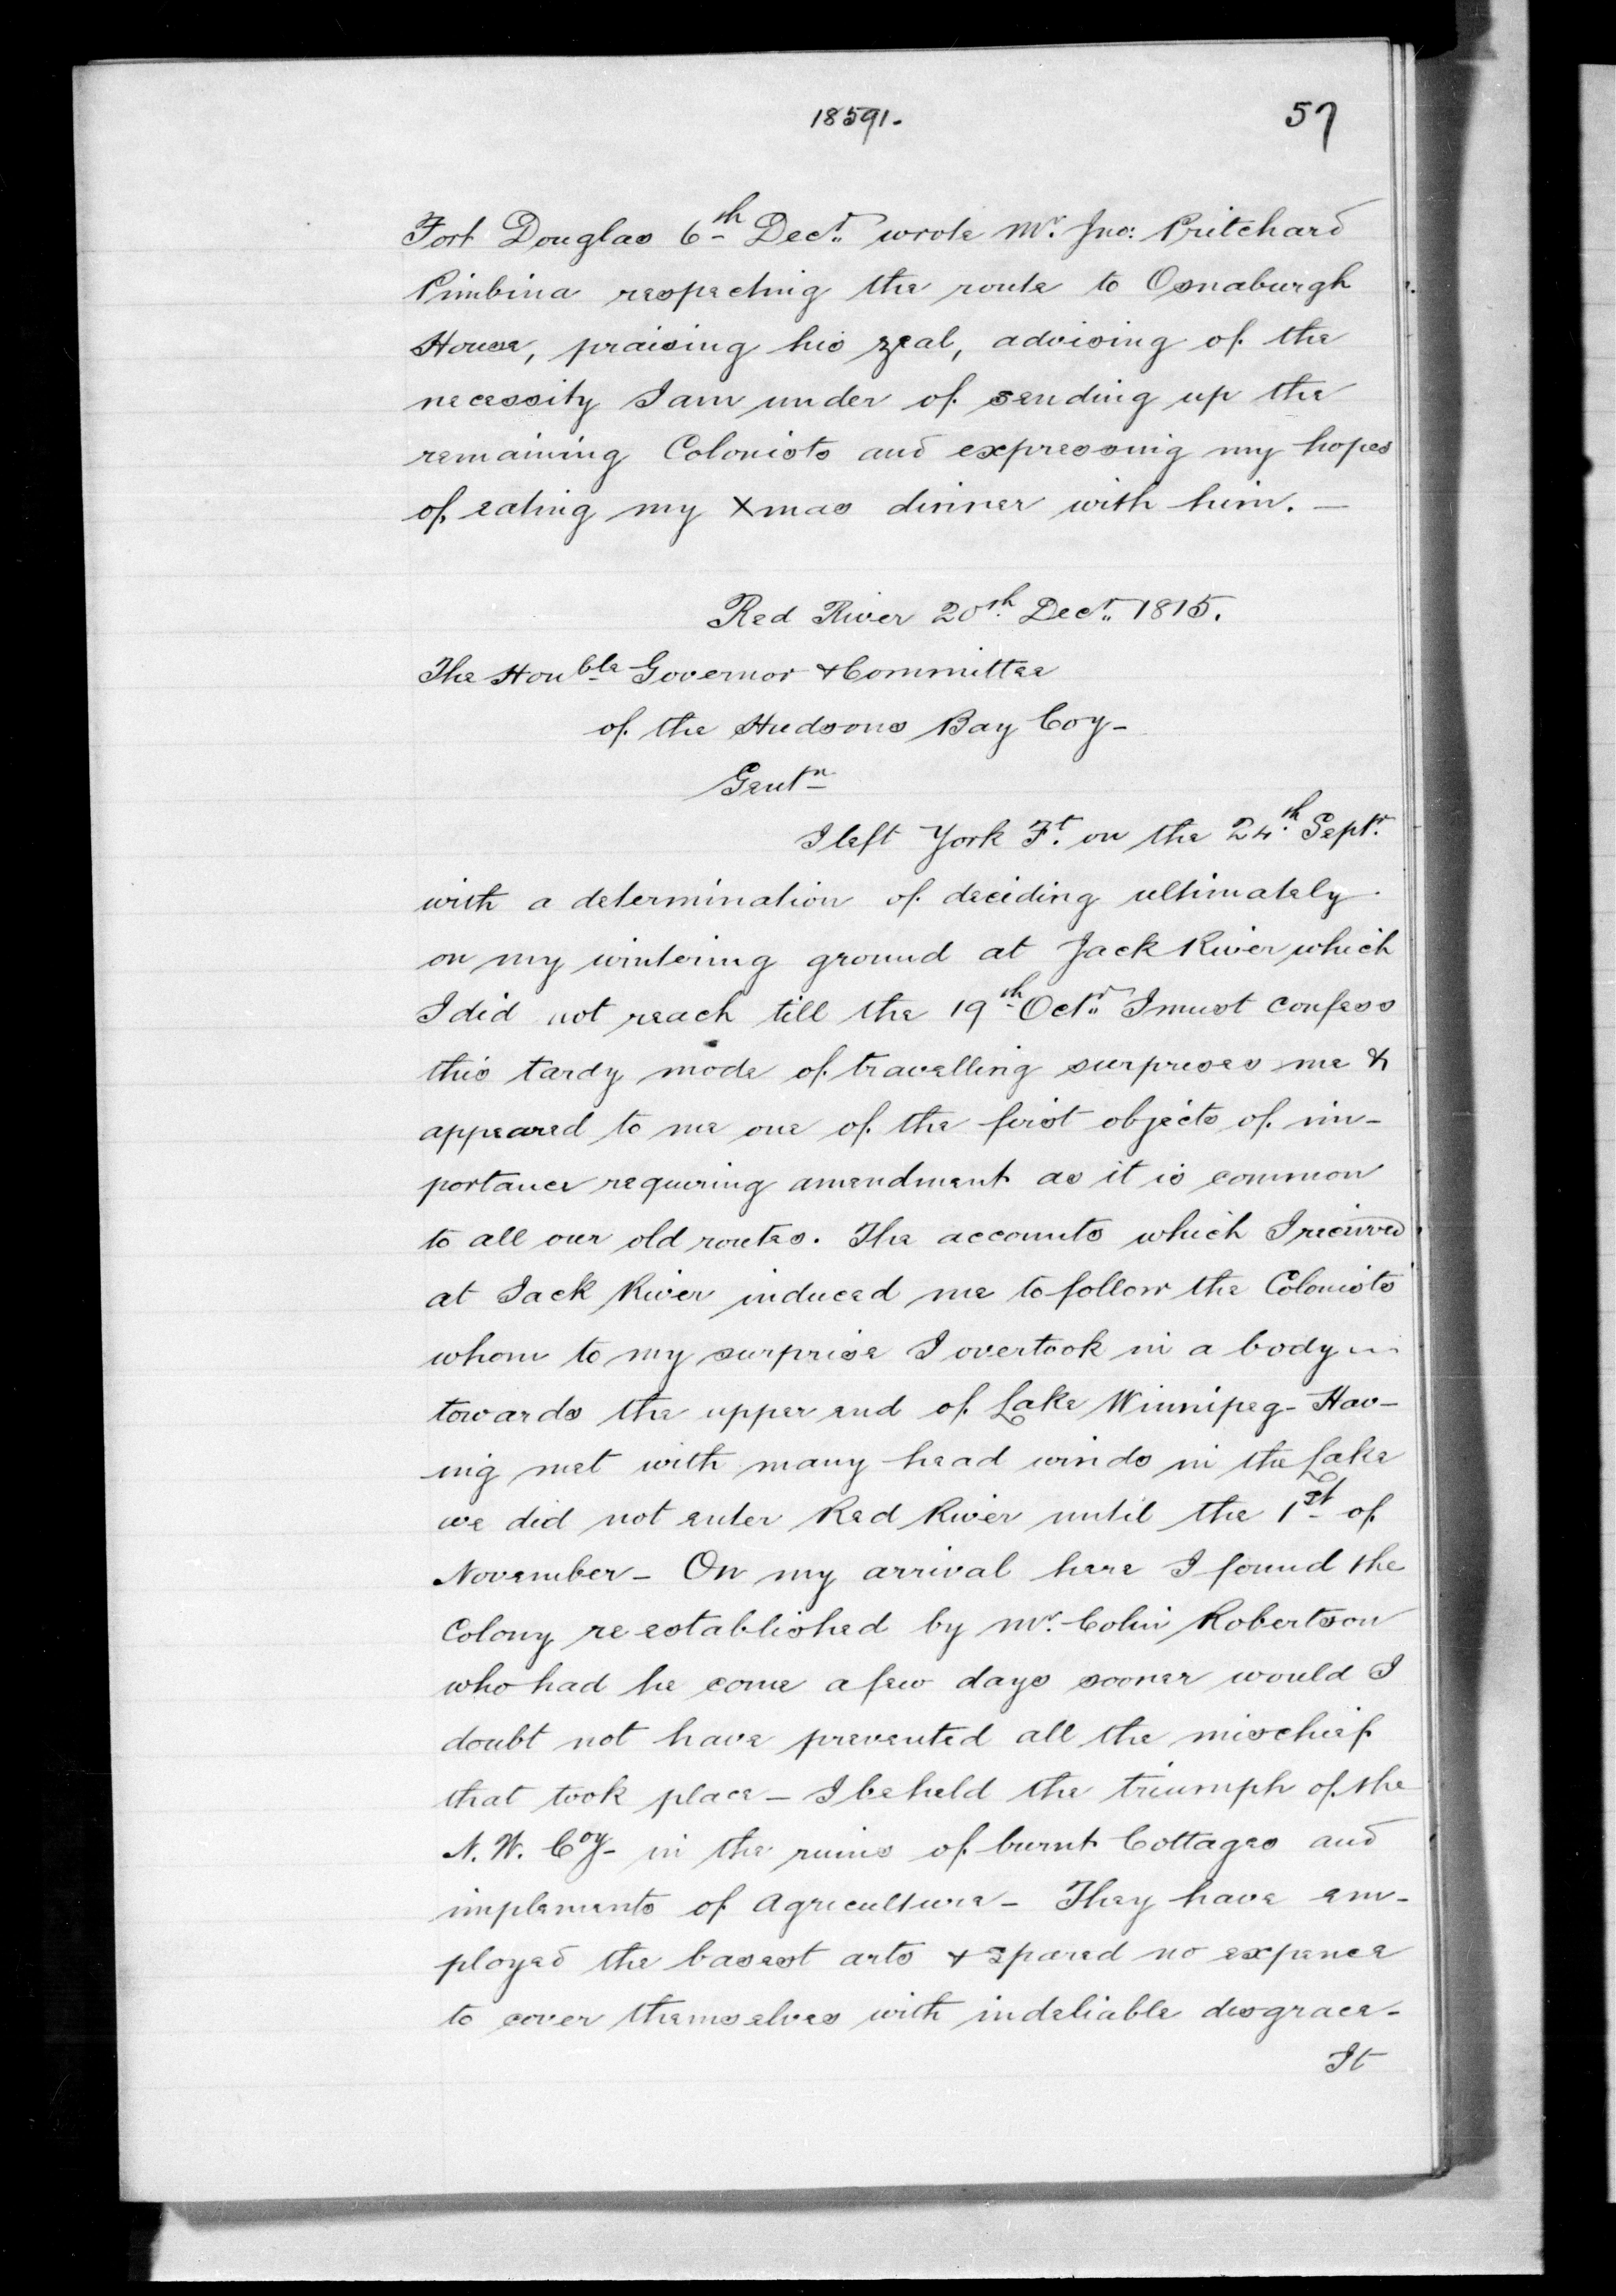 18591.
57
Fort Douglas 6th Decr. wrote Mr. Jno: Pritchard
Pimbina respecting the route to Osnaburgh
House, praising his zeal, advising of the
necessity I am under of sending up the
remaining Colonists and expressing my hopes
of eating my Xmas dinner with him. —
Red River 20th Decr. 1815.
The Honble Governor & Committee
of the Hudsons Bay Coy-
Gentn
I left York Ft. on the 24th Septr.
with a determination of deciding ultimately
on my wintering ground at Jack River which
I did not reach till the 19th Octr. I must confess
this tardy mode of travelling surprises me &
appeared to me one of the first objects of im-
portance requiring amendment as it is common
to all our old routes. The accounts which I recieved
at Jack River induced me to follow the Colonists
whom to my surprise I overtook in a body
towards the upper end of Lake Winnipeg- Hav-
ing met with many head winds in the Lake
we did not enter Red River until the 1st of
November- On my arrival here I found the
Colony re established by Mr. Colin Robertson
who had he come a few days sooner would I
doubt not have prevented all the mischief
that took place- I beheld the triumph of the
N. W. Coy- in the ruins of burnt Cottages and
implements of Agriculture- They have em-
ployed the basest arts & spared no expence
to cover themselves with indeliable disgrace-
It